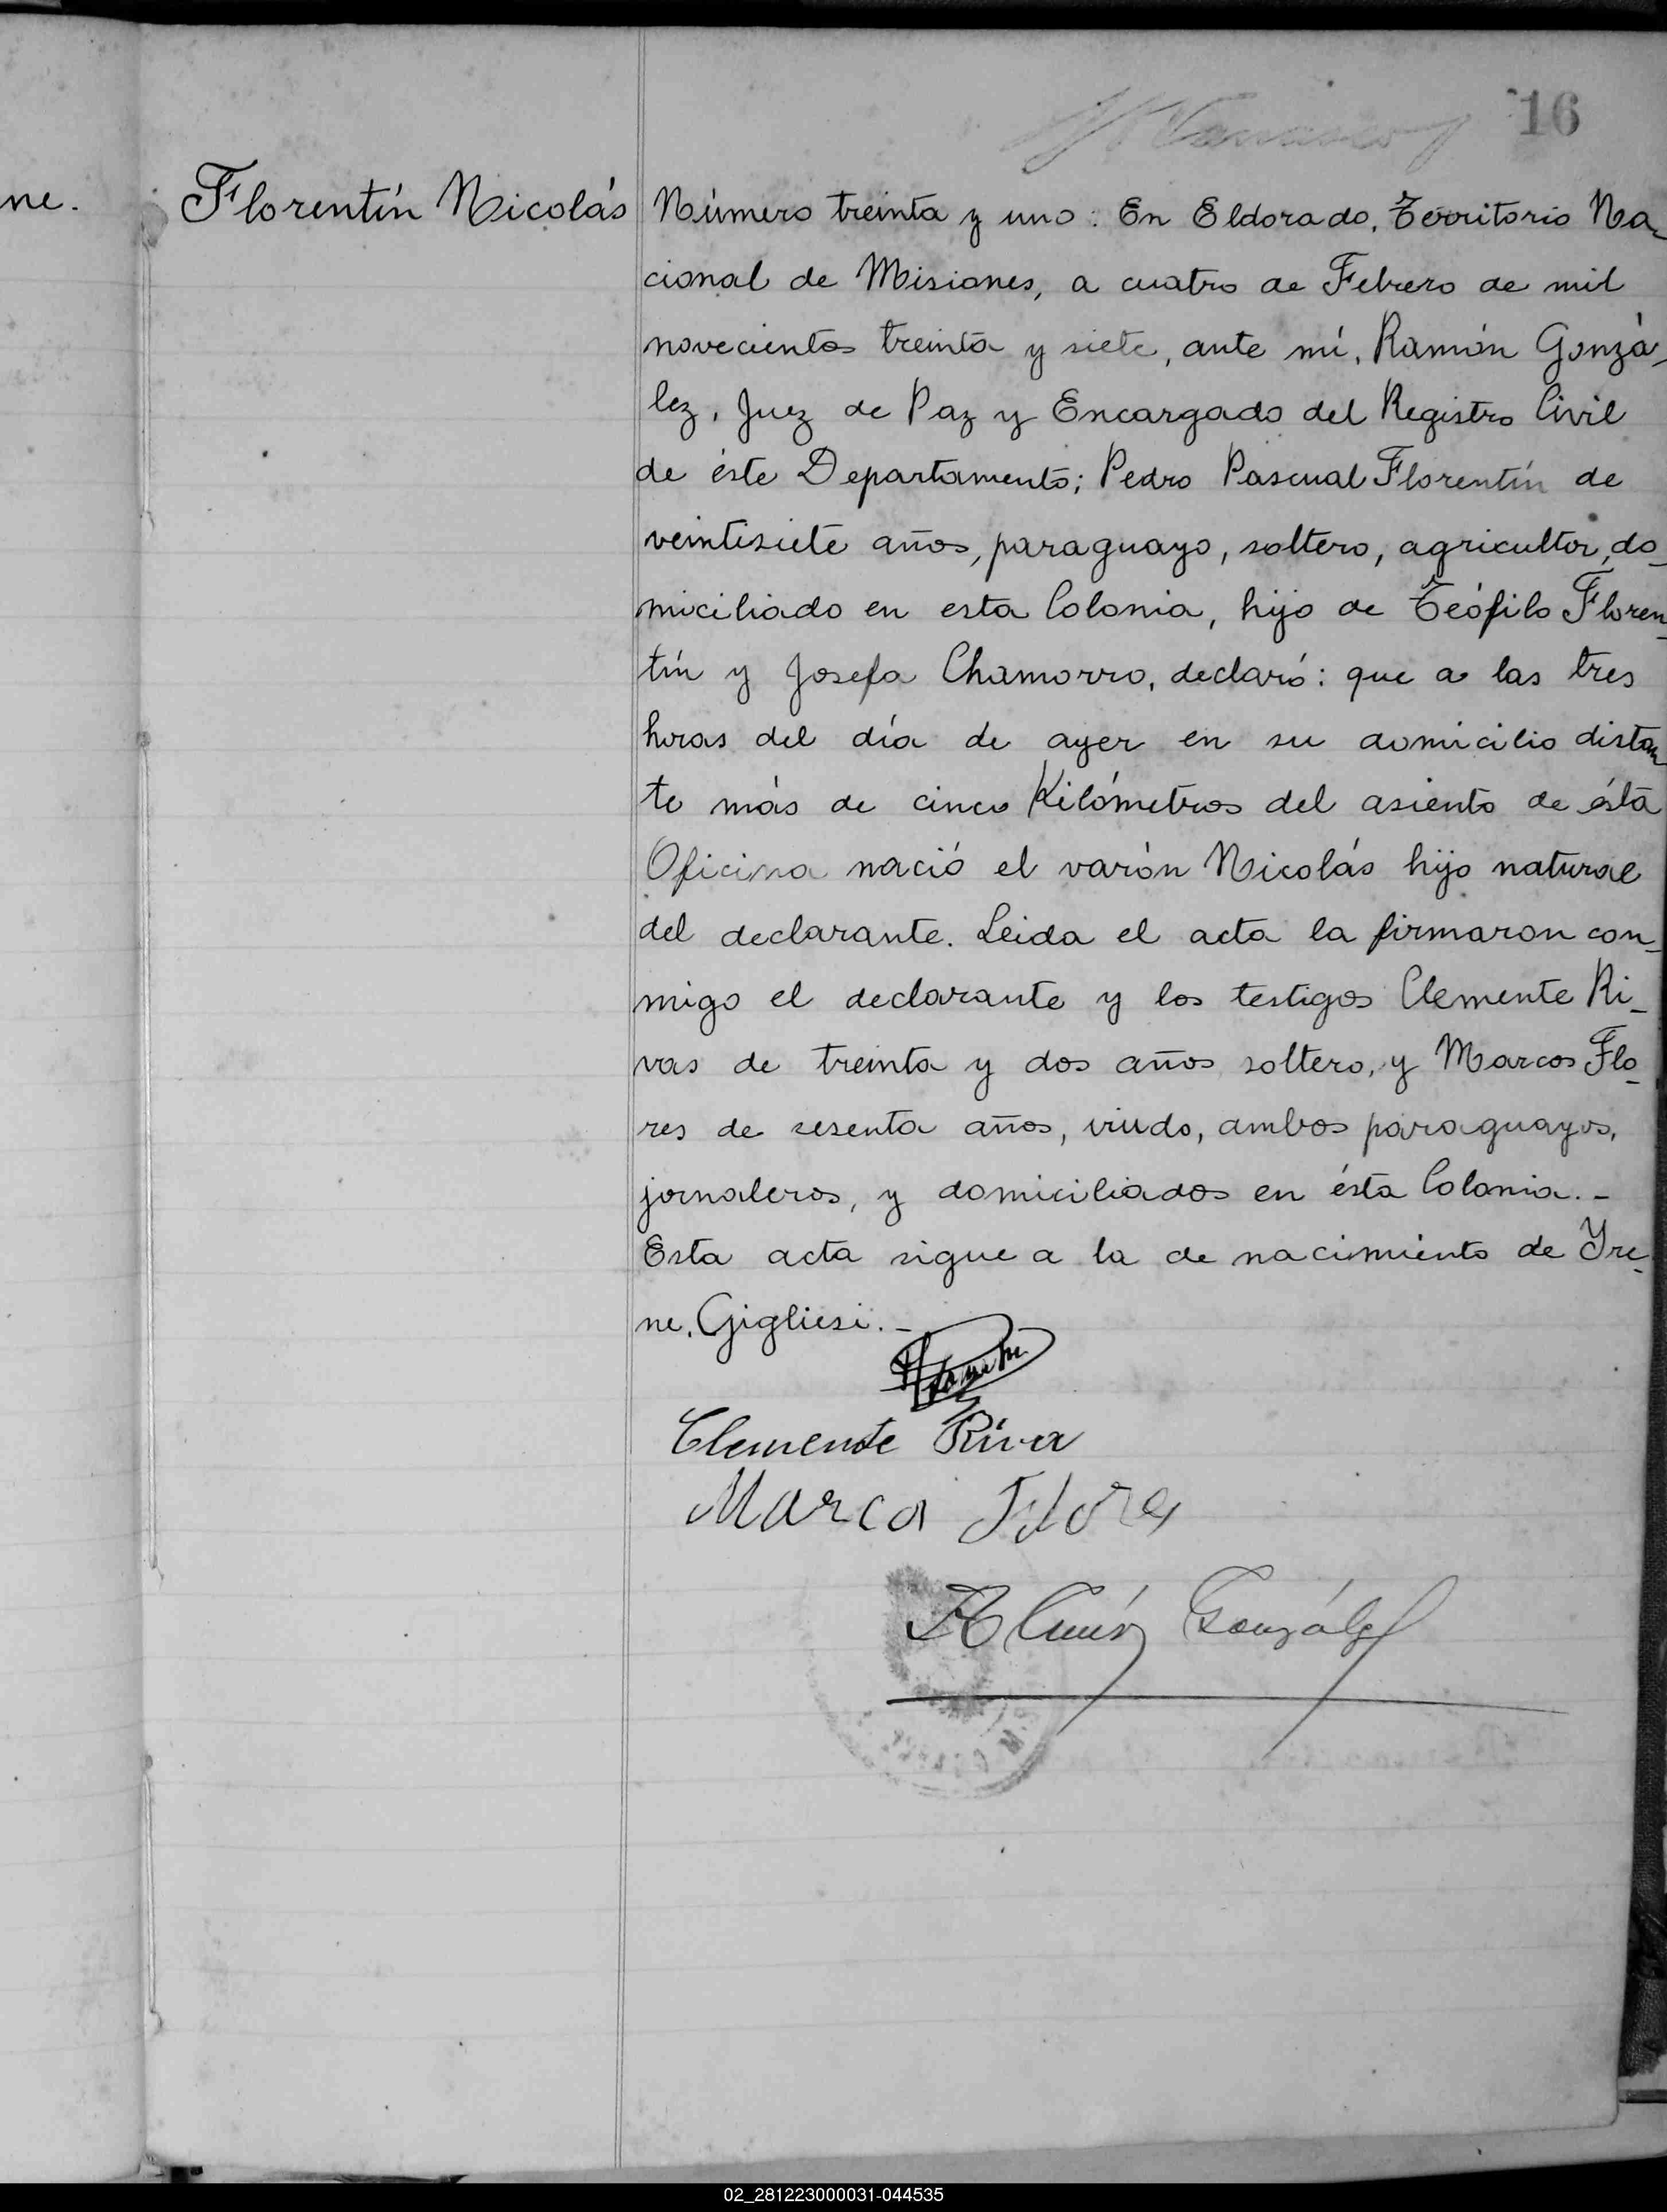 16
ne.
Florentín Nicolás
Número treinta y uno: En Eldorado, Territorio Na-
cional de Misiones, a cuatro de Febrero de mil
novecientos treinta y siete, ante mí, Ramón Gonzá-
lez, Juez de Paz y Encargado del Registro Civil
de éste Departamento; Pedro Pascual Florentín de
veintisiete años, paraguayo, soltero, agricultor, do-
miciliado en esta Colonia, hijo de Teófilo Floren-
tín y Josefa Chamorro, declaró: que a las tres
horas del día de ayer en su domicilio distan
te más de cinco Kilómetros del asiento de ésta
Oficina nació el varón Nicolás hijo natural
del declarante. Leida el acta la firmaron con-
migo el declarante y los testigos Clemente Ri-
vas de treinta y dos años soltero, y Marcos Flo-
res de sesenta años, viudo, ambos paraguayos,
jornaleros, y domiciliados en ésta Colonia.-
Esta acta sigue a la de nacimiento de Yre-
ne. Gigliesi.-
Clemente Riva
Marca Flores
Ramón González
02_281223000031-044535